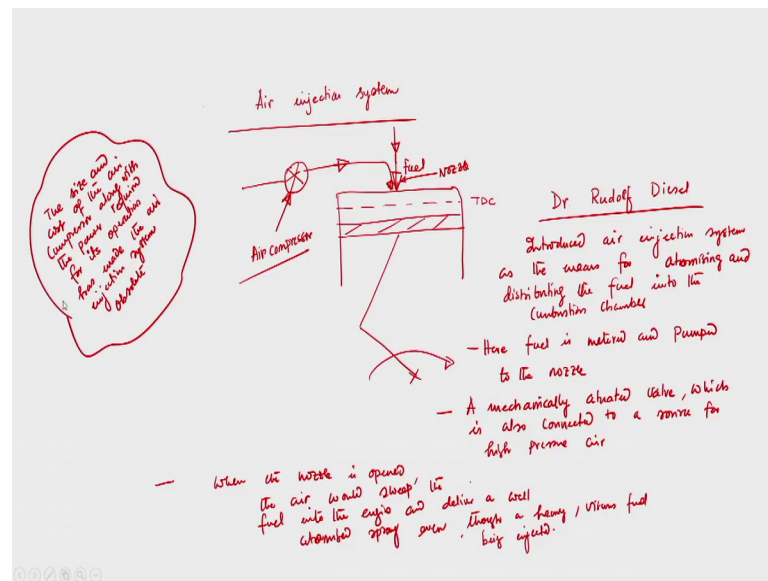 Air injection system
fuel
Nozzle
TDC
Air compressor
The size and
cost of the air
Compressor along with
the power required
for its operation
has made the air
injection system
obsolete
Dr Rudolf Diesel
Introduced air injection system
as the means for atomising and
distributing the fuel into the
Combustion chamber
- Here fuel is metered and Pumped
to the nozzle
- A mechanically atuated valve, which
is also connected to a source for
high pressure air
- When the nozzle is opened
the air would sweep the
fuel into the engine and deliver a well
atomised spray even though a heavy, viscous fuel
being injected.